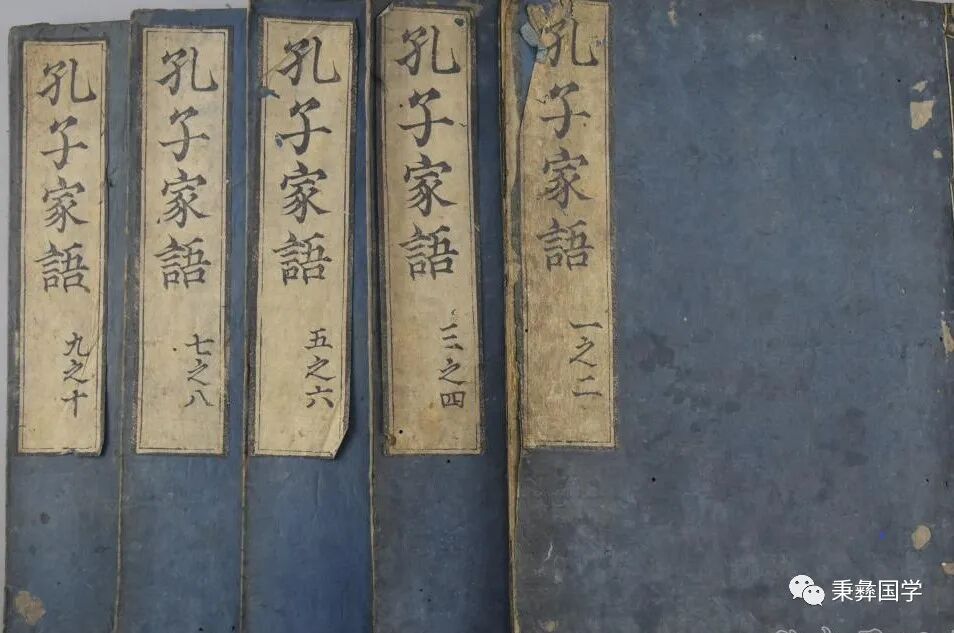 孔子家語 一之二
孔子家語 三之四
孔子家語 五之六
孔子家語 七之八
孔子家語 九之十
秉彝国学